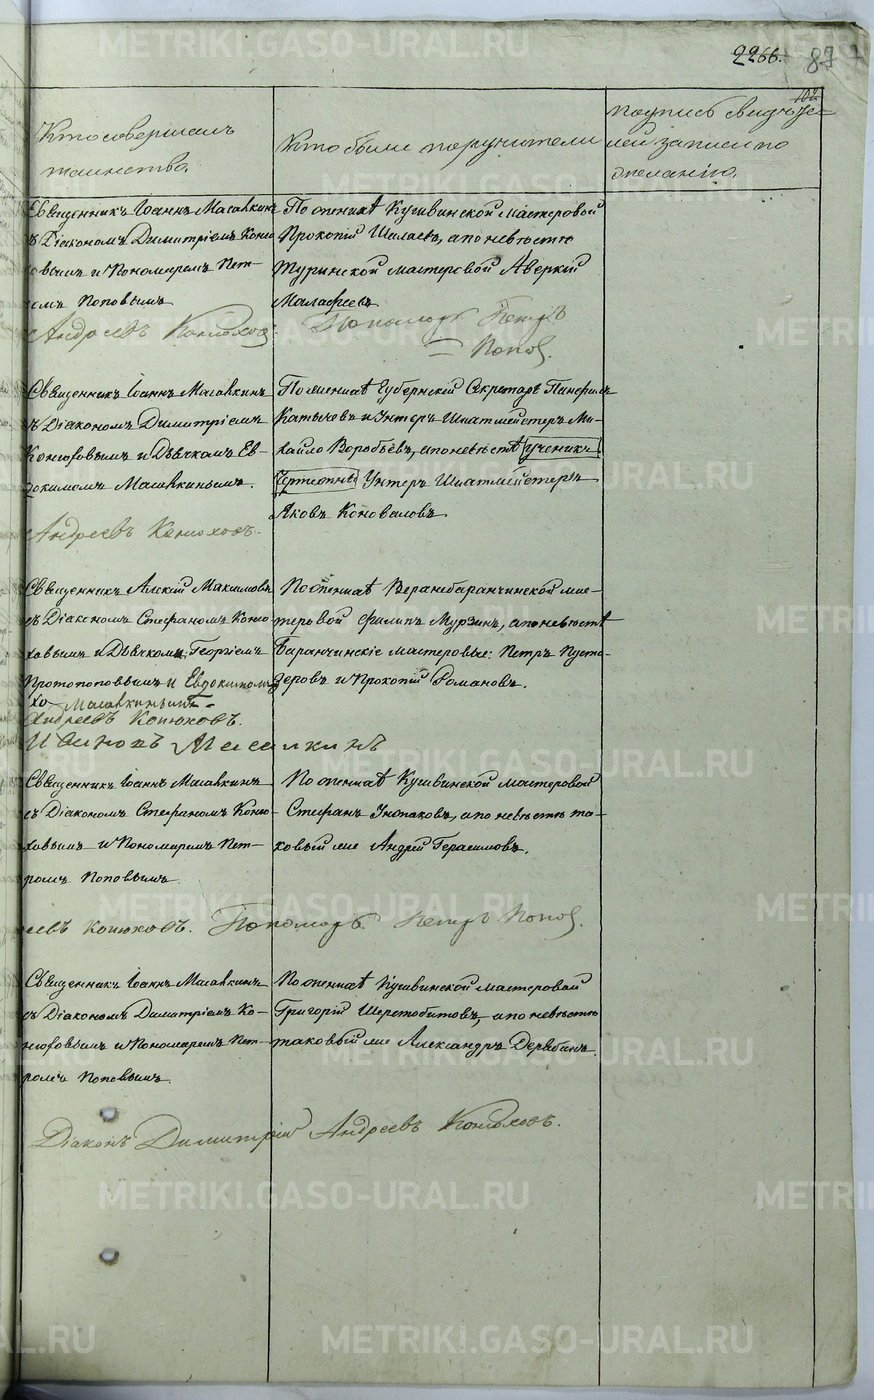 2266.
87
102
Кто совершалъ
таинство.
Кто были поручители
Подпись свидѣте-
лей записи по
желанію.
Священникъ Іоаннъ Масалкинъ
съ Діакономъ Димитріемъ Коню
ховымъ и Пономаремъ Пет-
ромъ Поповымъ
Андреевъ Конюховъ.
По женихѣ Кушвинской мастеровой
Прокопій Шалаевъ, а по невѣстѣ
Туринской мастеровой Аверкій
Малафеевъ
Пономарь Петръ
Поповъ.
Священникъ Іоаннъ Масалкинъ
съ Діакономъ Димитріемъ
Конюховымъ и Дьячкомъ Ев-
докимомъ Масалкинымъ.
Андреевъ Конюховъ.
По женихѣ Губернскій Секретарь Панфилъ
Катычевъ и Унтеръ Шихтмейстеръ Ми-
хайло Воробьевъ, а по невѣстѣ ученикъ
Чертежный Унтеръ Шихтмейстеръ
Яковъ Коноваловъ
Священникъ Алексій Максимовъ
съ Діакономъ Стефаномъ Коню-
ховымъ и Дьячкомъ Георгіемъ
Протопоповымъ и Евдокимомъ
Масалкинымъ
Андреевъ Конюховъ.
Іоаннъ Масалкинъ
По женихѣ Верхнебаранчинской мас-
теровой Филипъ Мурзинъ, а по невѣстѣ
Баранчинскіе мастеровые: Петръ Пусто-
деровъ и Прокопій Романовъ.
Священникъ Іоаннъ Масалкинъ
съ Діакономъ Стефаномъ Коню-
ховымъ и Пономаремъ Пет-
ромъ Поповымъ
По женихѣ Кушвинской мастеровой
Стефанъ Южаковъ, а по невѣстѣ та-
ковый же Андрей Герасимовъ.
еевъ Конюховъ. Пономарь Петръ Поповъ.
Священникъ Іоаннъ Масалкинъ
съ Діакономъ Димитріемъ Ко-
нюховымъ и Пономаремъ Пет-
ромъ Поповымъ.
По женихѣ Кушвинской мастеровой
Григорій Шерстобитовъ, а по невѣстѣ
таковый же Александръ Дерябинъ.
Діаконъ Димитрій Андреевъ Конюховъ.
METRIKI.GASO-URAL.RU